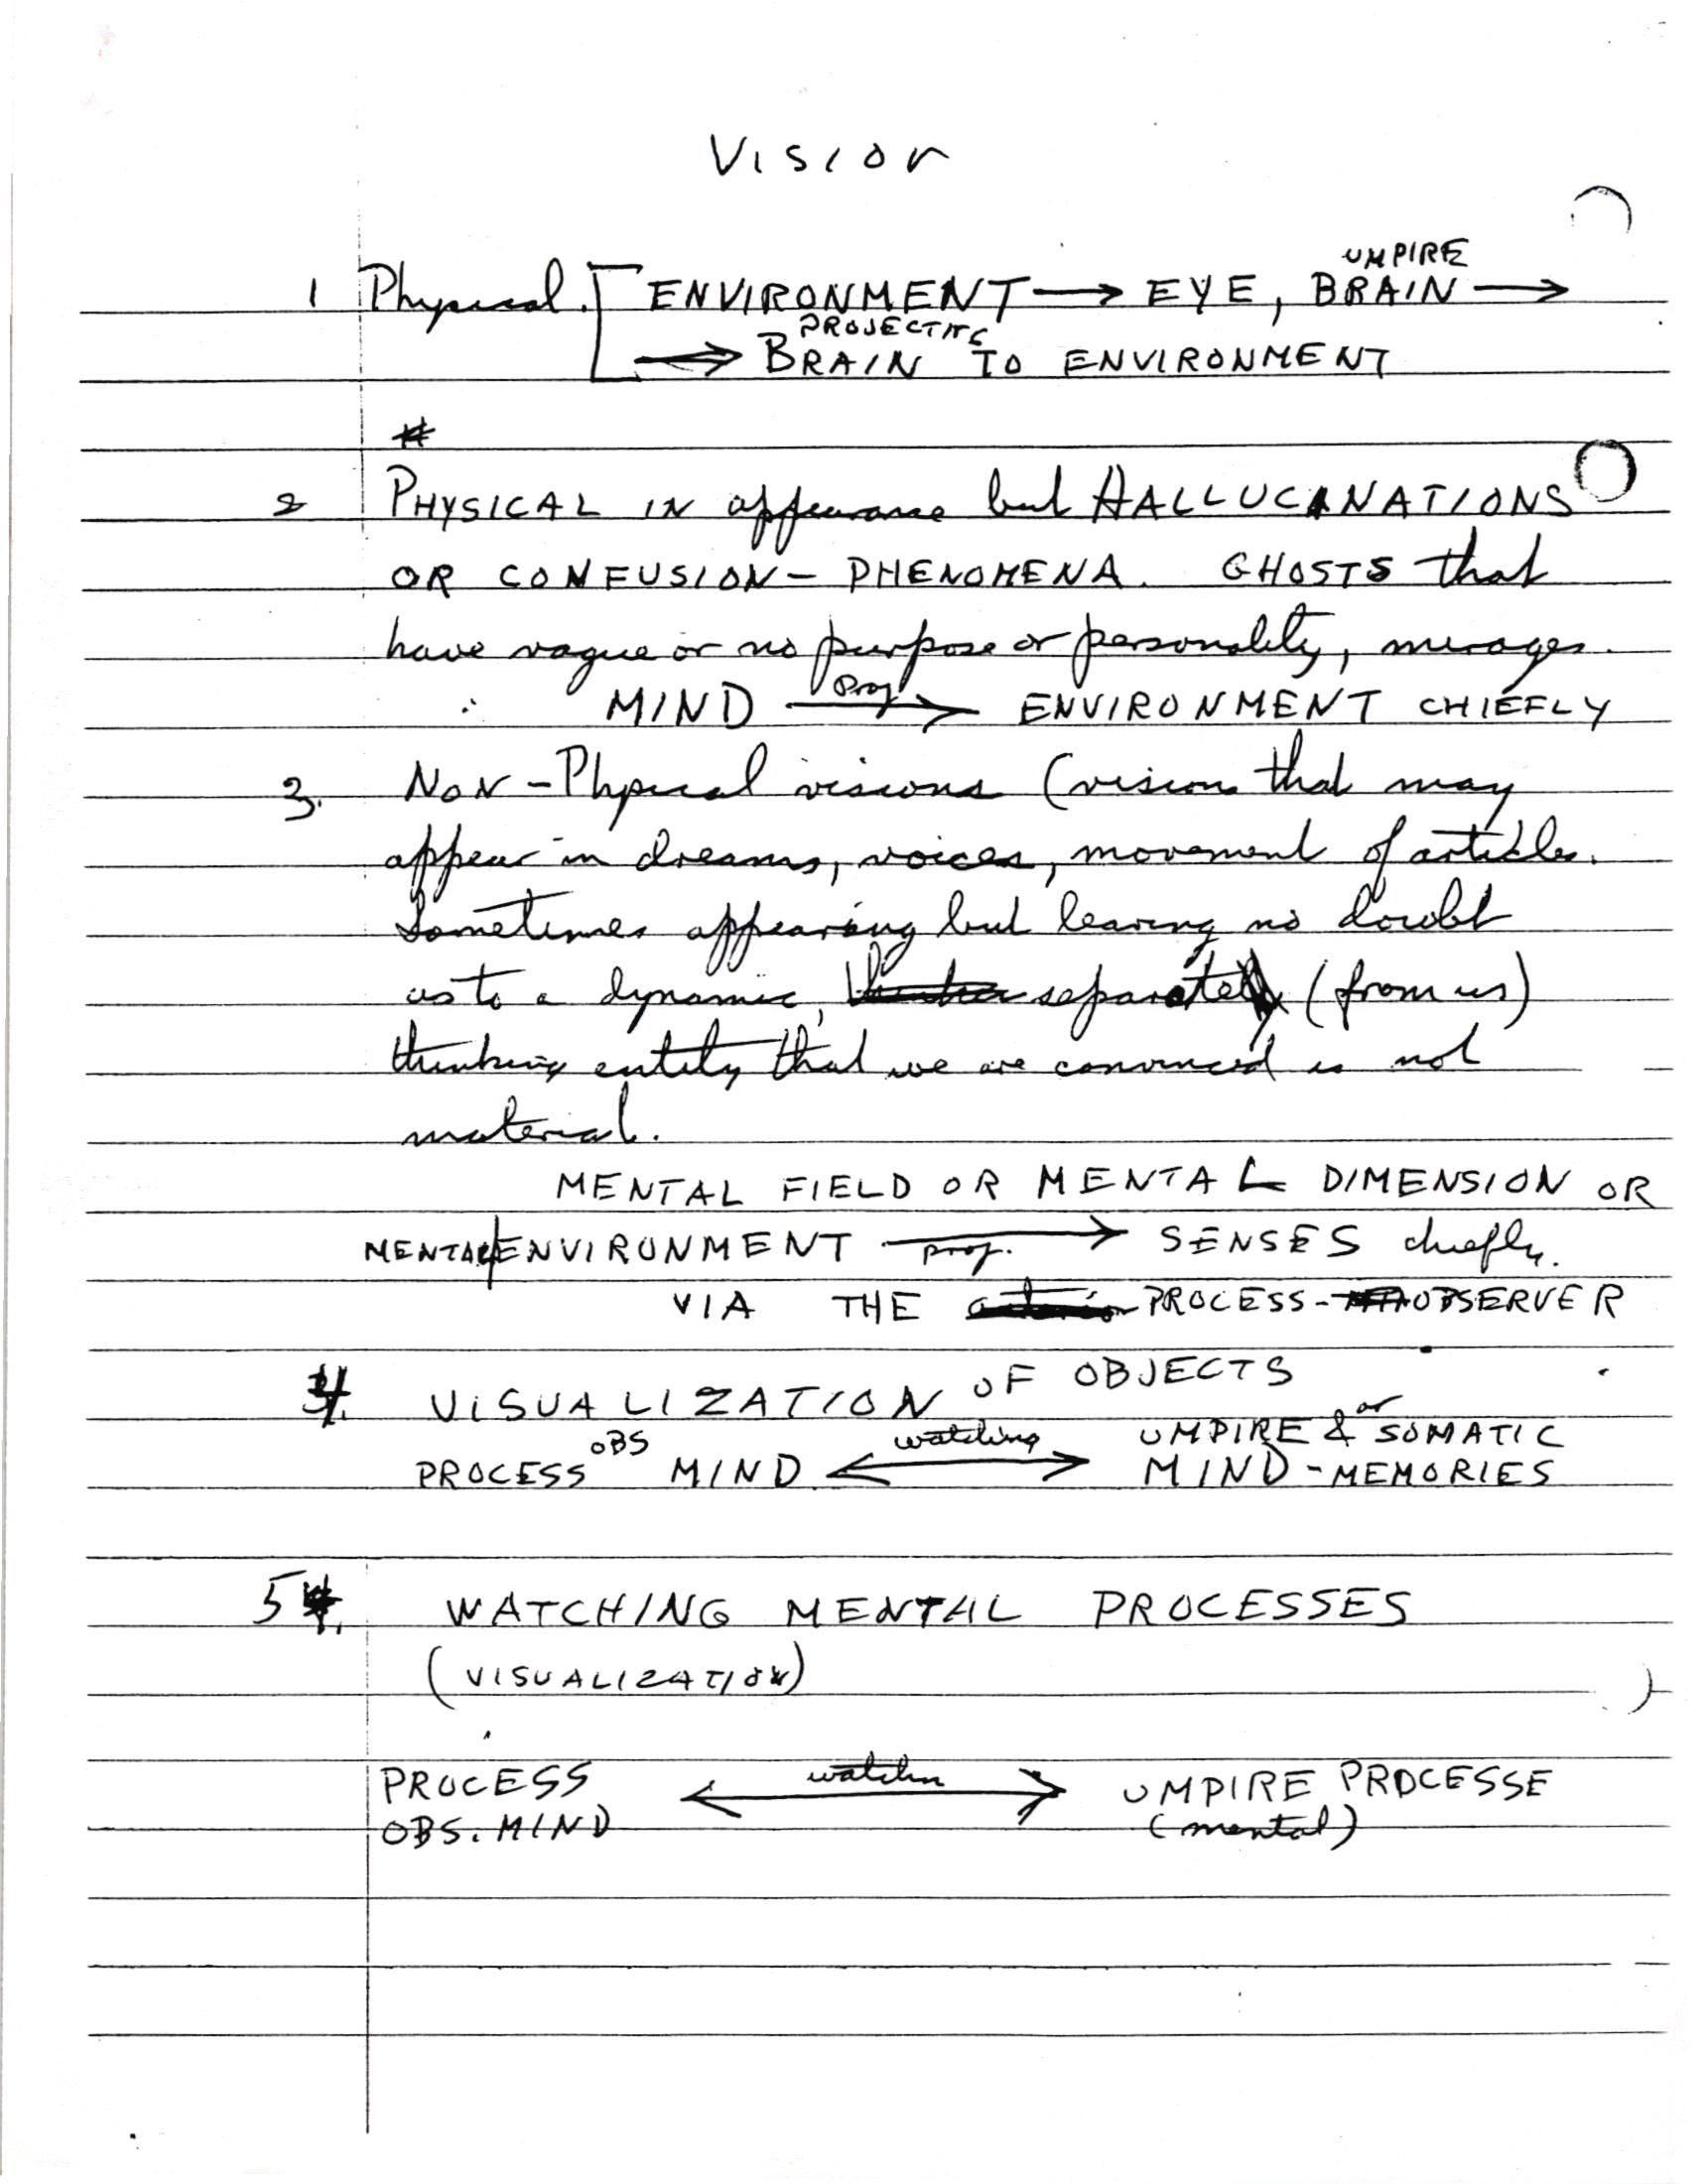 Vision
UMPIRE
1 Physical. [ ENVIRONMENT → EYE, BRAIN →
PROJECTING
⇒ BRAIN TO ENVIRONMENT
2 PHYSICAL IN appearance but HALLUCINATIONS
OR CONFUSION - PHENOMENA. GHOSTS that
have vague or no purpose or personality, mirages.
∴ MIND Proj → ENVIRONMENT CHIEFLY
3. Non-Physical visions (visions that may
appear in dreams, voices, movement of articles.
Sometimes appearing but leaving no doubt
as to a dynamic, separate (from us)
thinking entity that we are convinced is not
material.
MENTAL FIELD OR MENTAL DIMENSION OR
MENTAL ENVIRONMENT proj. → SENSES chiefly.
VIA THE PROCESS-OBSERVER
4. VISUALIZATION OF OBJECTS
OBS watching UMPIRE & or SOMATIC
PROCESS MIND ↔ MIND - MEMORIES
5. WATCHING MENTAL PROCESSES
(VISUALIZATION)
PROCESS ↔ UMPIRE PROCESSE
OBS. MIND (mental)